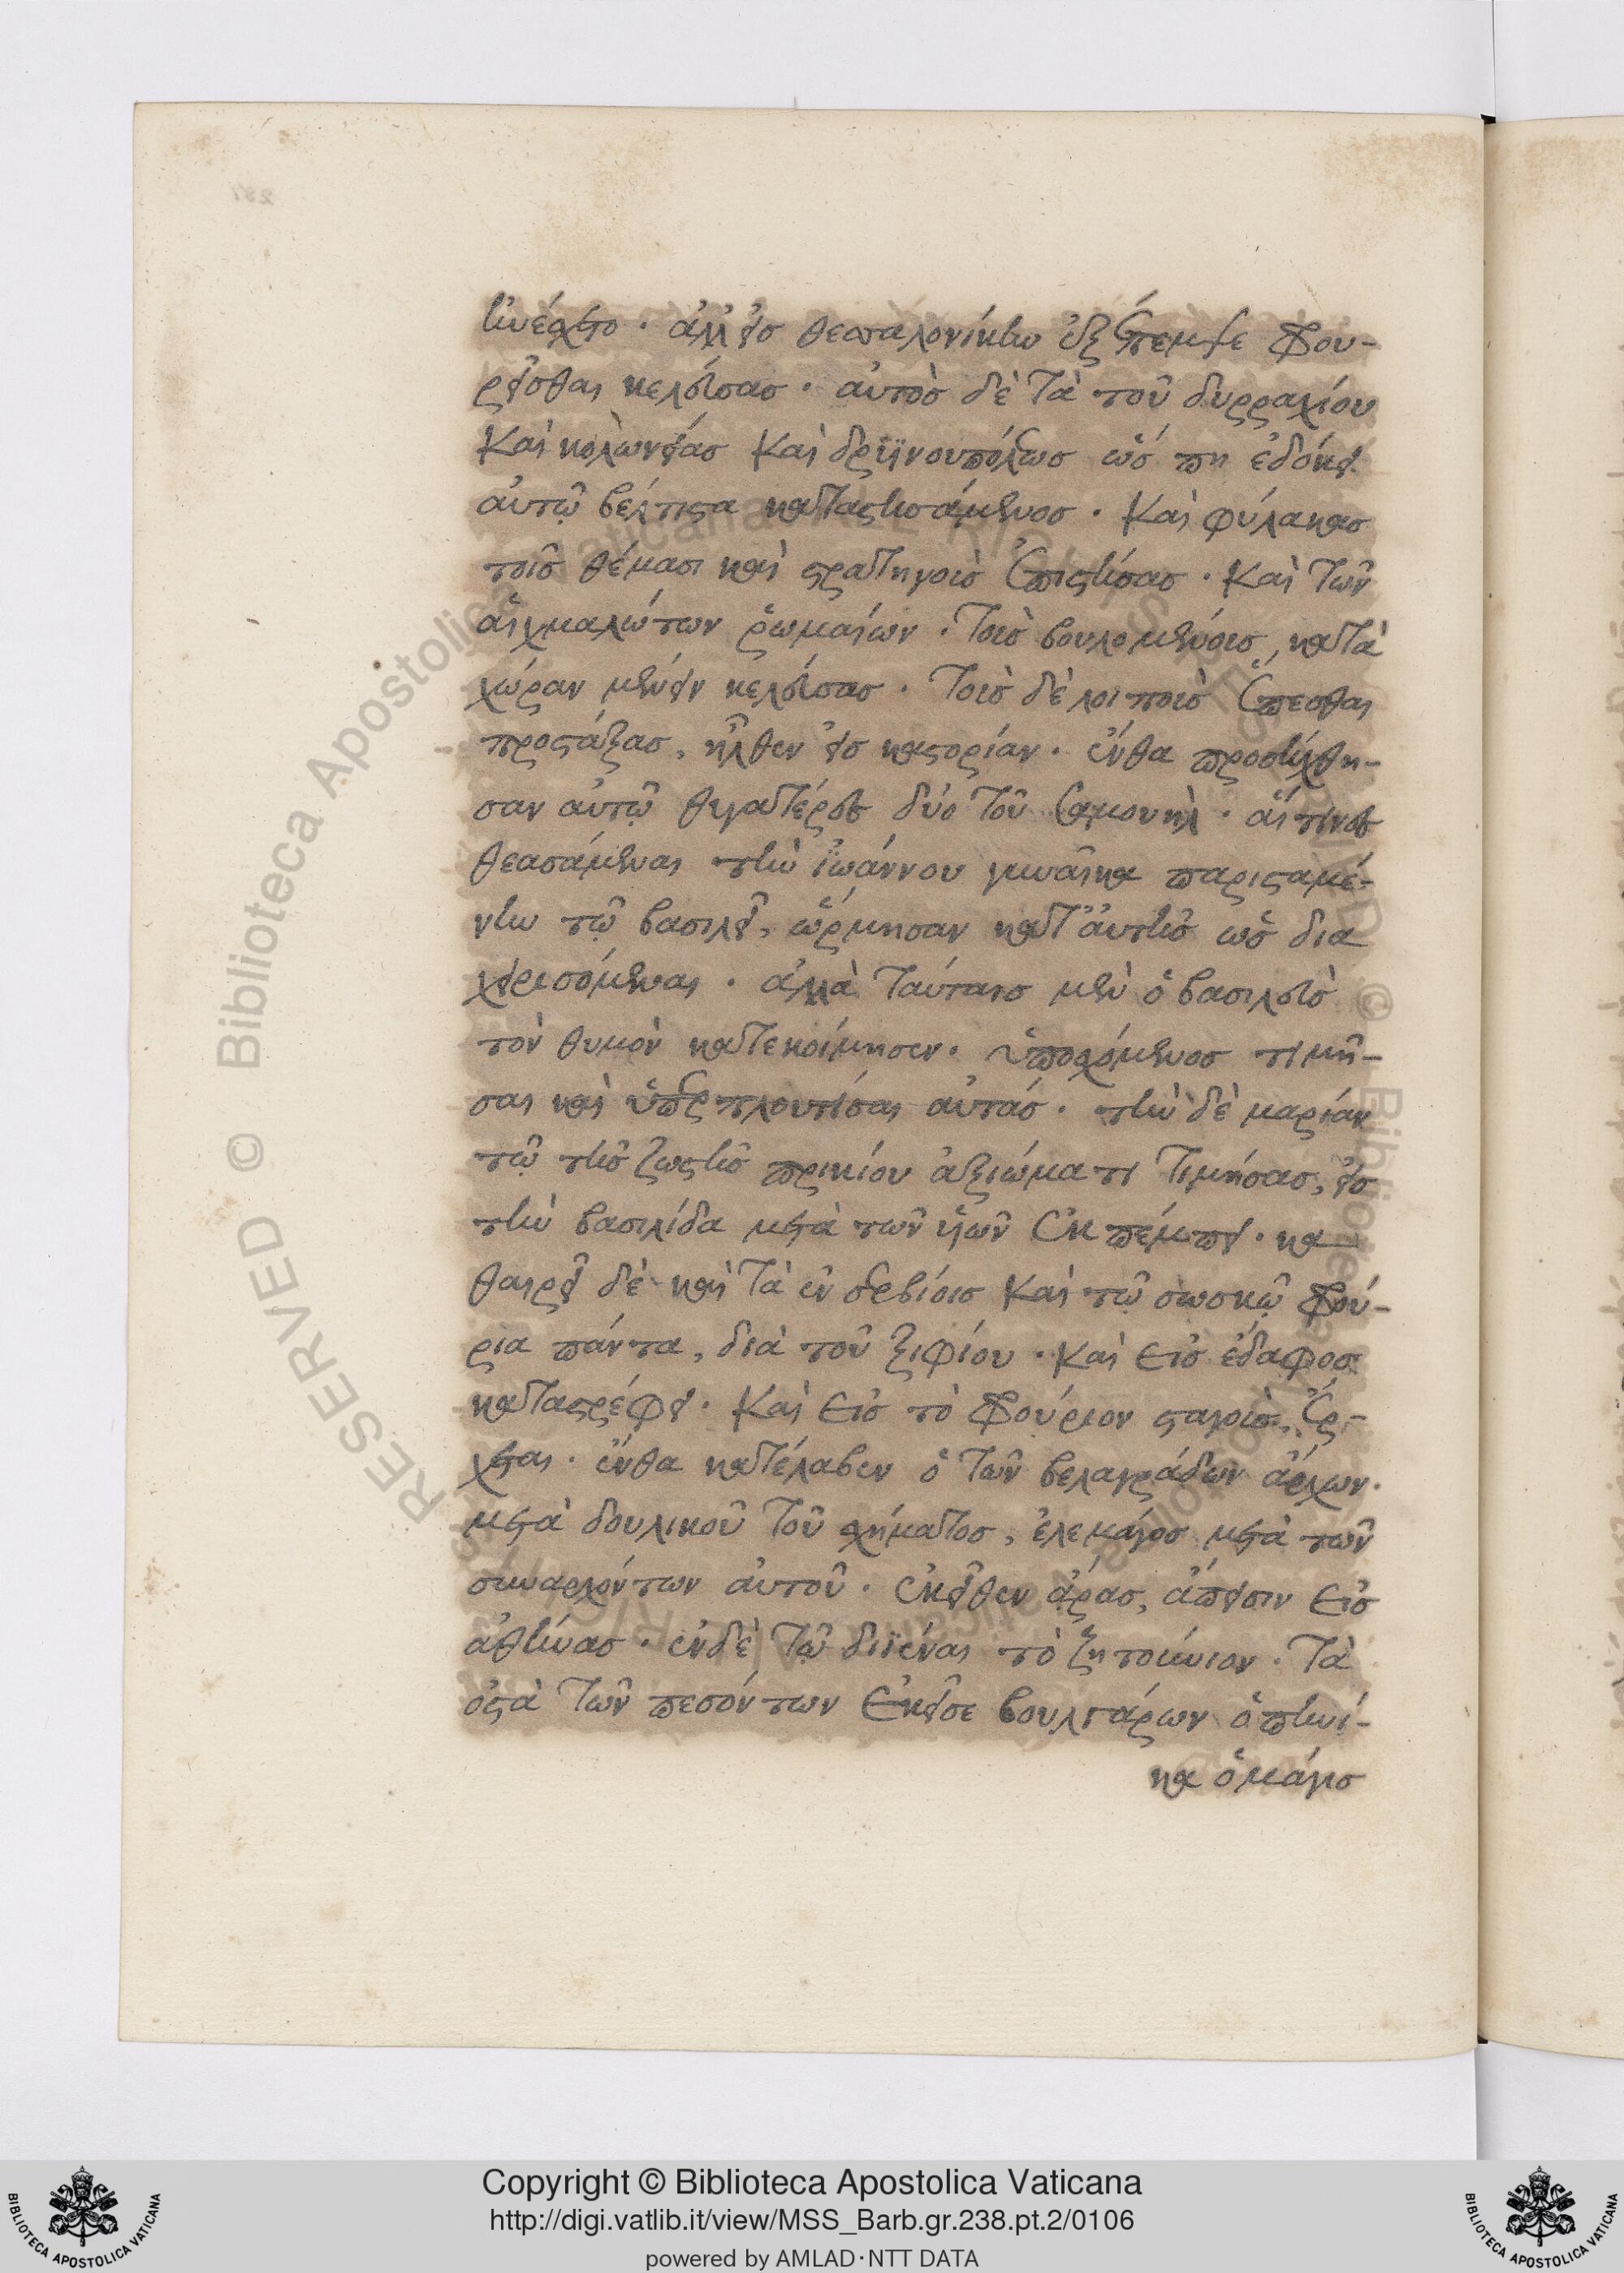 ἠνέσχετο · ἀλλ' εἰς θεσσαλονίκην ἐξέπεμψε φρου-
ρεῖσθαι κελεύσας · αὐτὸς δὲ τὰ τοῦ δυρραχίου
καὶ κολωνείας καὶ δρϊινουπόλεως ὥς πη ἐδόκει
αὐτῷ βέλτιστα καταστησάμενος · καὶ φύλακας
τοῖς θέμασι καὶ στρατηγοὺς ἐπιστήσας · καὶ τῶν
αἰχμαλώτων ῥωμαίων · τοῖς βουλομένοις, κατὰ
χώραν μένειν κελεύσας · τοῖς δὲ λοιποῖς ἕπεσθαι
προστάξας, ἦλθεν εἰς καστορίαν · ἔνθα προσήχθη-
σαν αὐτῷ θυγατέρες δύο τοῦ σαμουὴλ · αἵτινες
θεασάμεναι τὴν ϊωάννου γυναῖκα παρισταμέ-
νην τῷ βασιλεῖ, ὥρμησαν κατ' αὐτῆς ὡς δια
χειρισόμεναι · ἀλλὰ ταύταις μὲν ὁ βασιλεὺς
τὸν θυμὸν κατεκοίμησεν · ὑποσχόμενος τιμῆ-
σαι καὶ ὑπερπλουτίσαι αὐτάς · τὴν δὲ μαρίαν
τῷ τῆς ζωστῆς πρικίου ἀξιώματι τιμήσας, εἰς
τὴν βασιλίδα μετὰ τῶν υἱῶν ἐκπέμπει · κα
θαιρεῖ δὲ καὶ τὰ ἐν σερβίοις καὶ τῷ σωσκῷ φρού-
ρια πάντα, διὰ τοῦ ξιφίου · καὶ εἰς ἔδαφος
καταστρέφει · καὶ εἰς τὸ φρούριον σταγοὺς ἔρ-
χεται · ἔνθα κατέλαβεν ὁ τῶν βελαγράδων ἄρχων ·
μετὰ δουλικοῦ τοῦ σχήματος, ἐλεμάγος μετὰ τῶν
συναρχόντων αὐτοῦ · ἐκεῖθεν ἄρας, ἄπεισιν εἰς
ἀθήνας · ἐν δὲ τῷ διϊέναι τὸ ζητούνιον · τὰ
ὀστὰ τῶν πεσόντων ἐκεῖσε βουλγάρων ὁπηνί-
κα ὁ μάγισ
Copyright © Biblioteca Apostolica Vaticana
http://digi.vatlib.it/view/MSS_Barb.gr.238.pt.2/0106
powered by AMLAD·NTT DATA